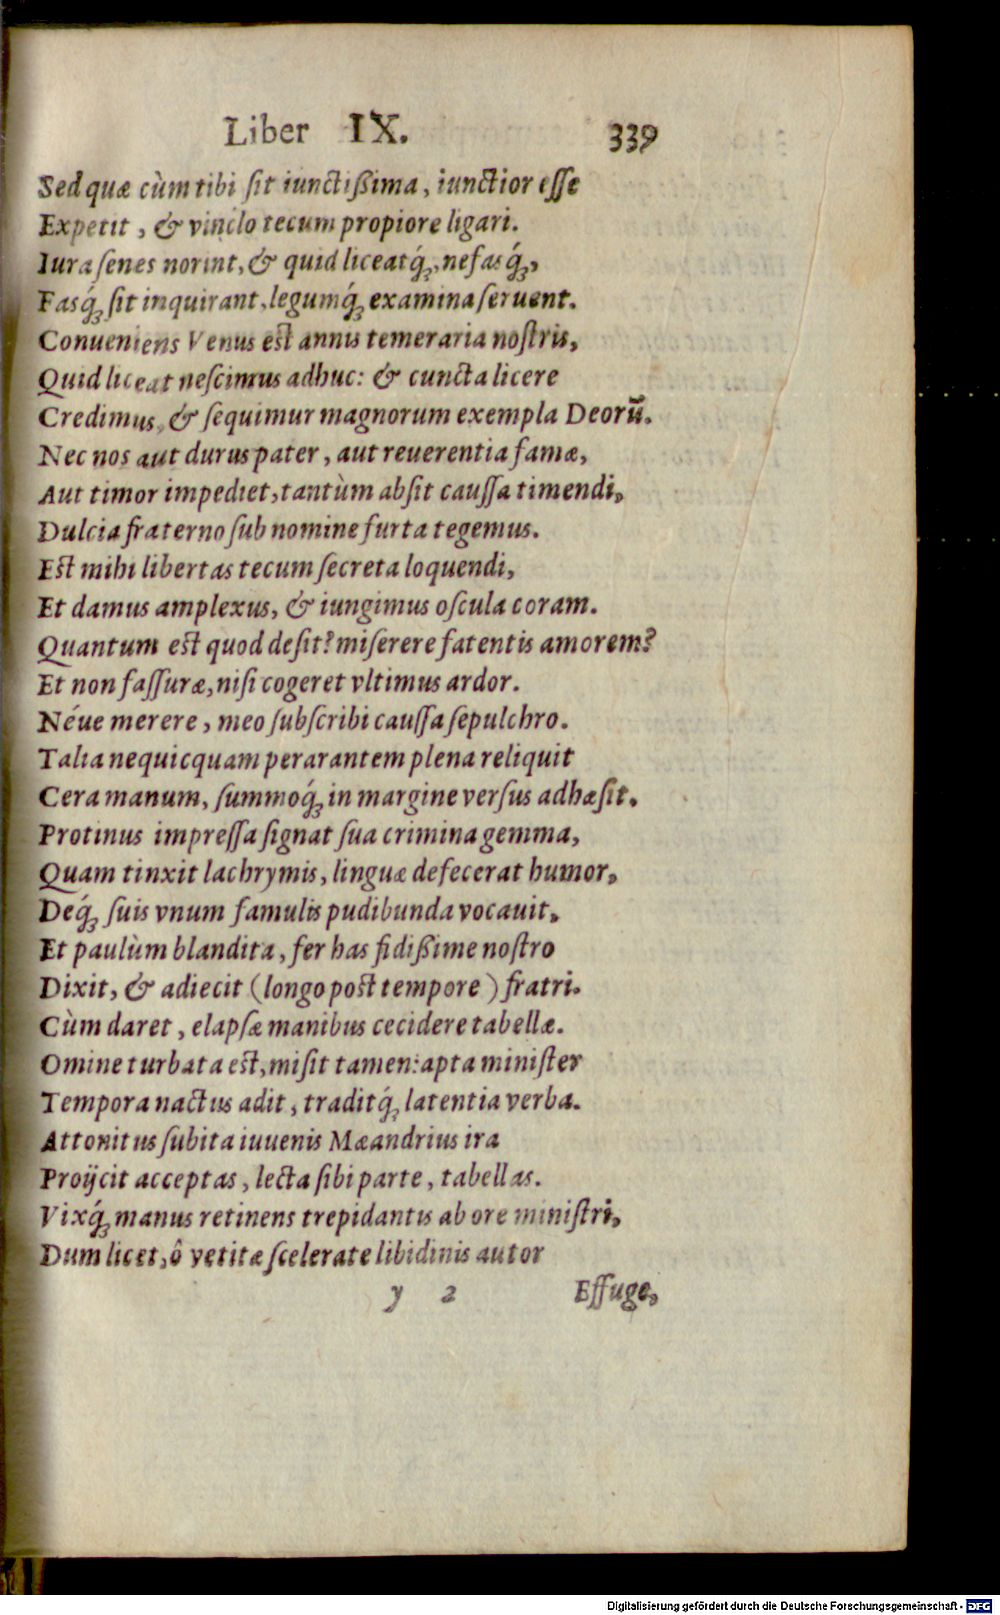 Liber IX. 339
Sed quæ cùm tibi ſit iunctißima, iunctior eſſe
Expetit, & vinclo tecum propiore ligari.
Iura ſenes norint, & quid liceatq́ꝫ, nefasq́ꝫ,
Fasq́ꝫ ſit inquirant, legumq́ꝫ examina ſeruent.
Conueniens Venus eſt annis temeraria noſtris,
Quid liceat neſcimus adhuc: & cuncta licere
Credimus, & ſequimur magnorum exempla Deorū.
Nec nos aut durus pater, aut reuerentia famæ,
Aut timor impediet, tantùm abſit cauſſa timendi,
Dulcia fraterno ſub nomine furta tegemus.
Eſt mihi libertas tecum ſecreta loquendi,
Et damus amplexus, & iungimus oſcula coram.
Quantum eſt quod deſit? miſerere fatentis amorem?
Et non faſſuræ, niſi cogeret vltimus ardor.
Néue merere, meo ſubſcribi cauſſa ſepulchro.
Talia nequicquam perarantem plena reliquit
Cera manum, ſummoq́ꝫ in margine verſus adhæſit.
Protinus impreſſa ſignat ſua crimina gemma,
Quam tinxit lachrymis, linguæ defecerat humor,
Deq́ꝫ ſuis vnum famulis pudibunda vocauit,
Et paulùm blandita, fer has fidißime noſtro
Dixit, & adiecit (longo poſt tempore) fratri.
Cùm daret, elapſæ manibus cecidere tabellæ.
Omine turbata eſt, miſit tamen: apta miniſter
Tempora nactus adit, traditq́ꝫ latentia verba.
Attonitus ſubita iuuenis Mæandrius ira
Proijcit acceptas, lecta ſibi parte, tabellas.
Vixq́ꝫ manus retinens trepidantis ab ore miniſtri,
Dum licet, ô vetitæ ſcelerate libidinis autor
y 2 Effuge,
Digitalisierung gefördert durch die Deutsche Forschungsgemeinschaft - DFG